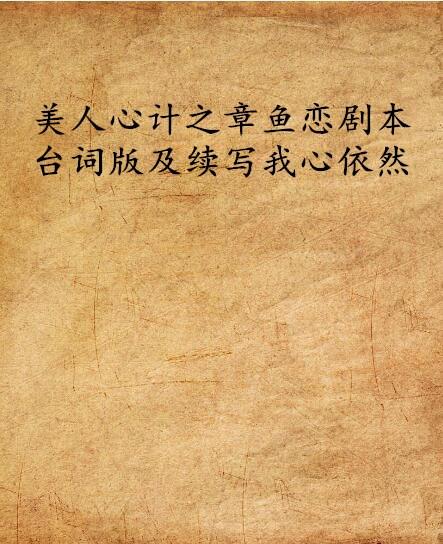 美人心计之章鱼恋剧本
台词版及续写我心依然